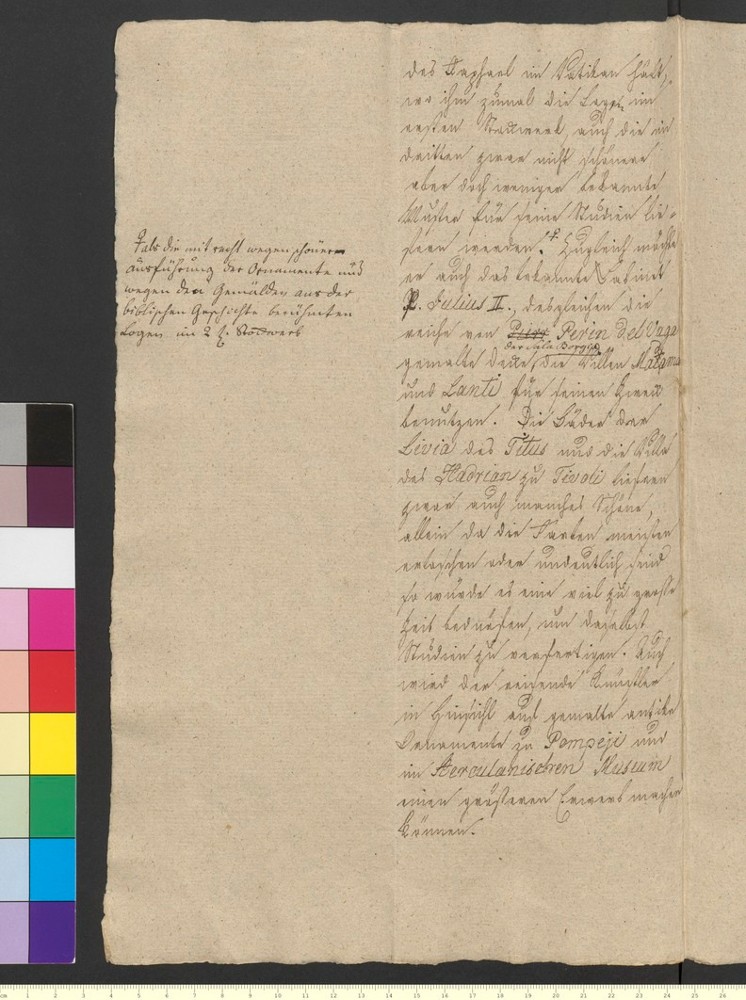 des Raphael im Vatikan hält,
wo ihm zumal die Logen im
ersten Stockwerk, auch die im
dritten zwar nicht schönere
aber doch weniger bekannte
Muster für seine Studien lie-
fern werden. Zugleich möchte
er auch das bekannte Cabinet
P. Julius II., desgleichen die
reiche von Perin del Vaga
der Sala Borgia
gemalte Decke, die Villen Madama
und Lanti für seinen Zweck
benutzen. Die Bäder der
Livia des Titus und die Villa
des Hadrian zu Tivoli liefern
zwar auch manches Schöne,
allein da die Farben meisten
erloschen oder undeutlich sind
so würde es eine viel zu große
Zeit bedürfen, um daselbst
Studien zu verfertigen. Auch
wird der reisende Künstler
in Hinsicht auf gemalte antike
Ornamente zu Pompeji und
im Herculanischen Museum
einen größeren Erwerb machen
können.
als die mit recht wegen schöner
Ausführung der Ornamente und
wegen den Gemälden aus der
biblischen Geschichte berühmten
Logen im 2 t. Stockwerk